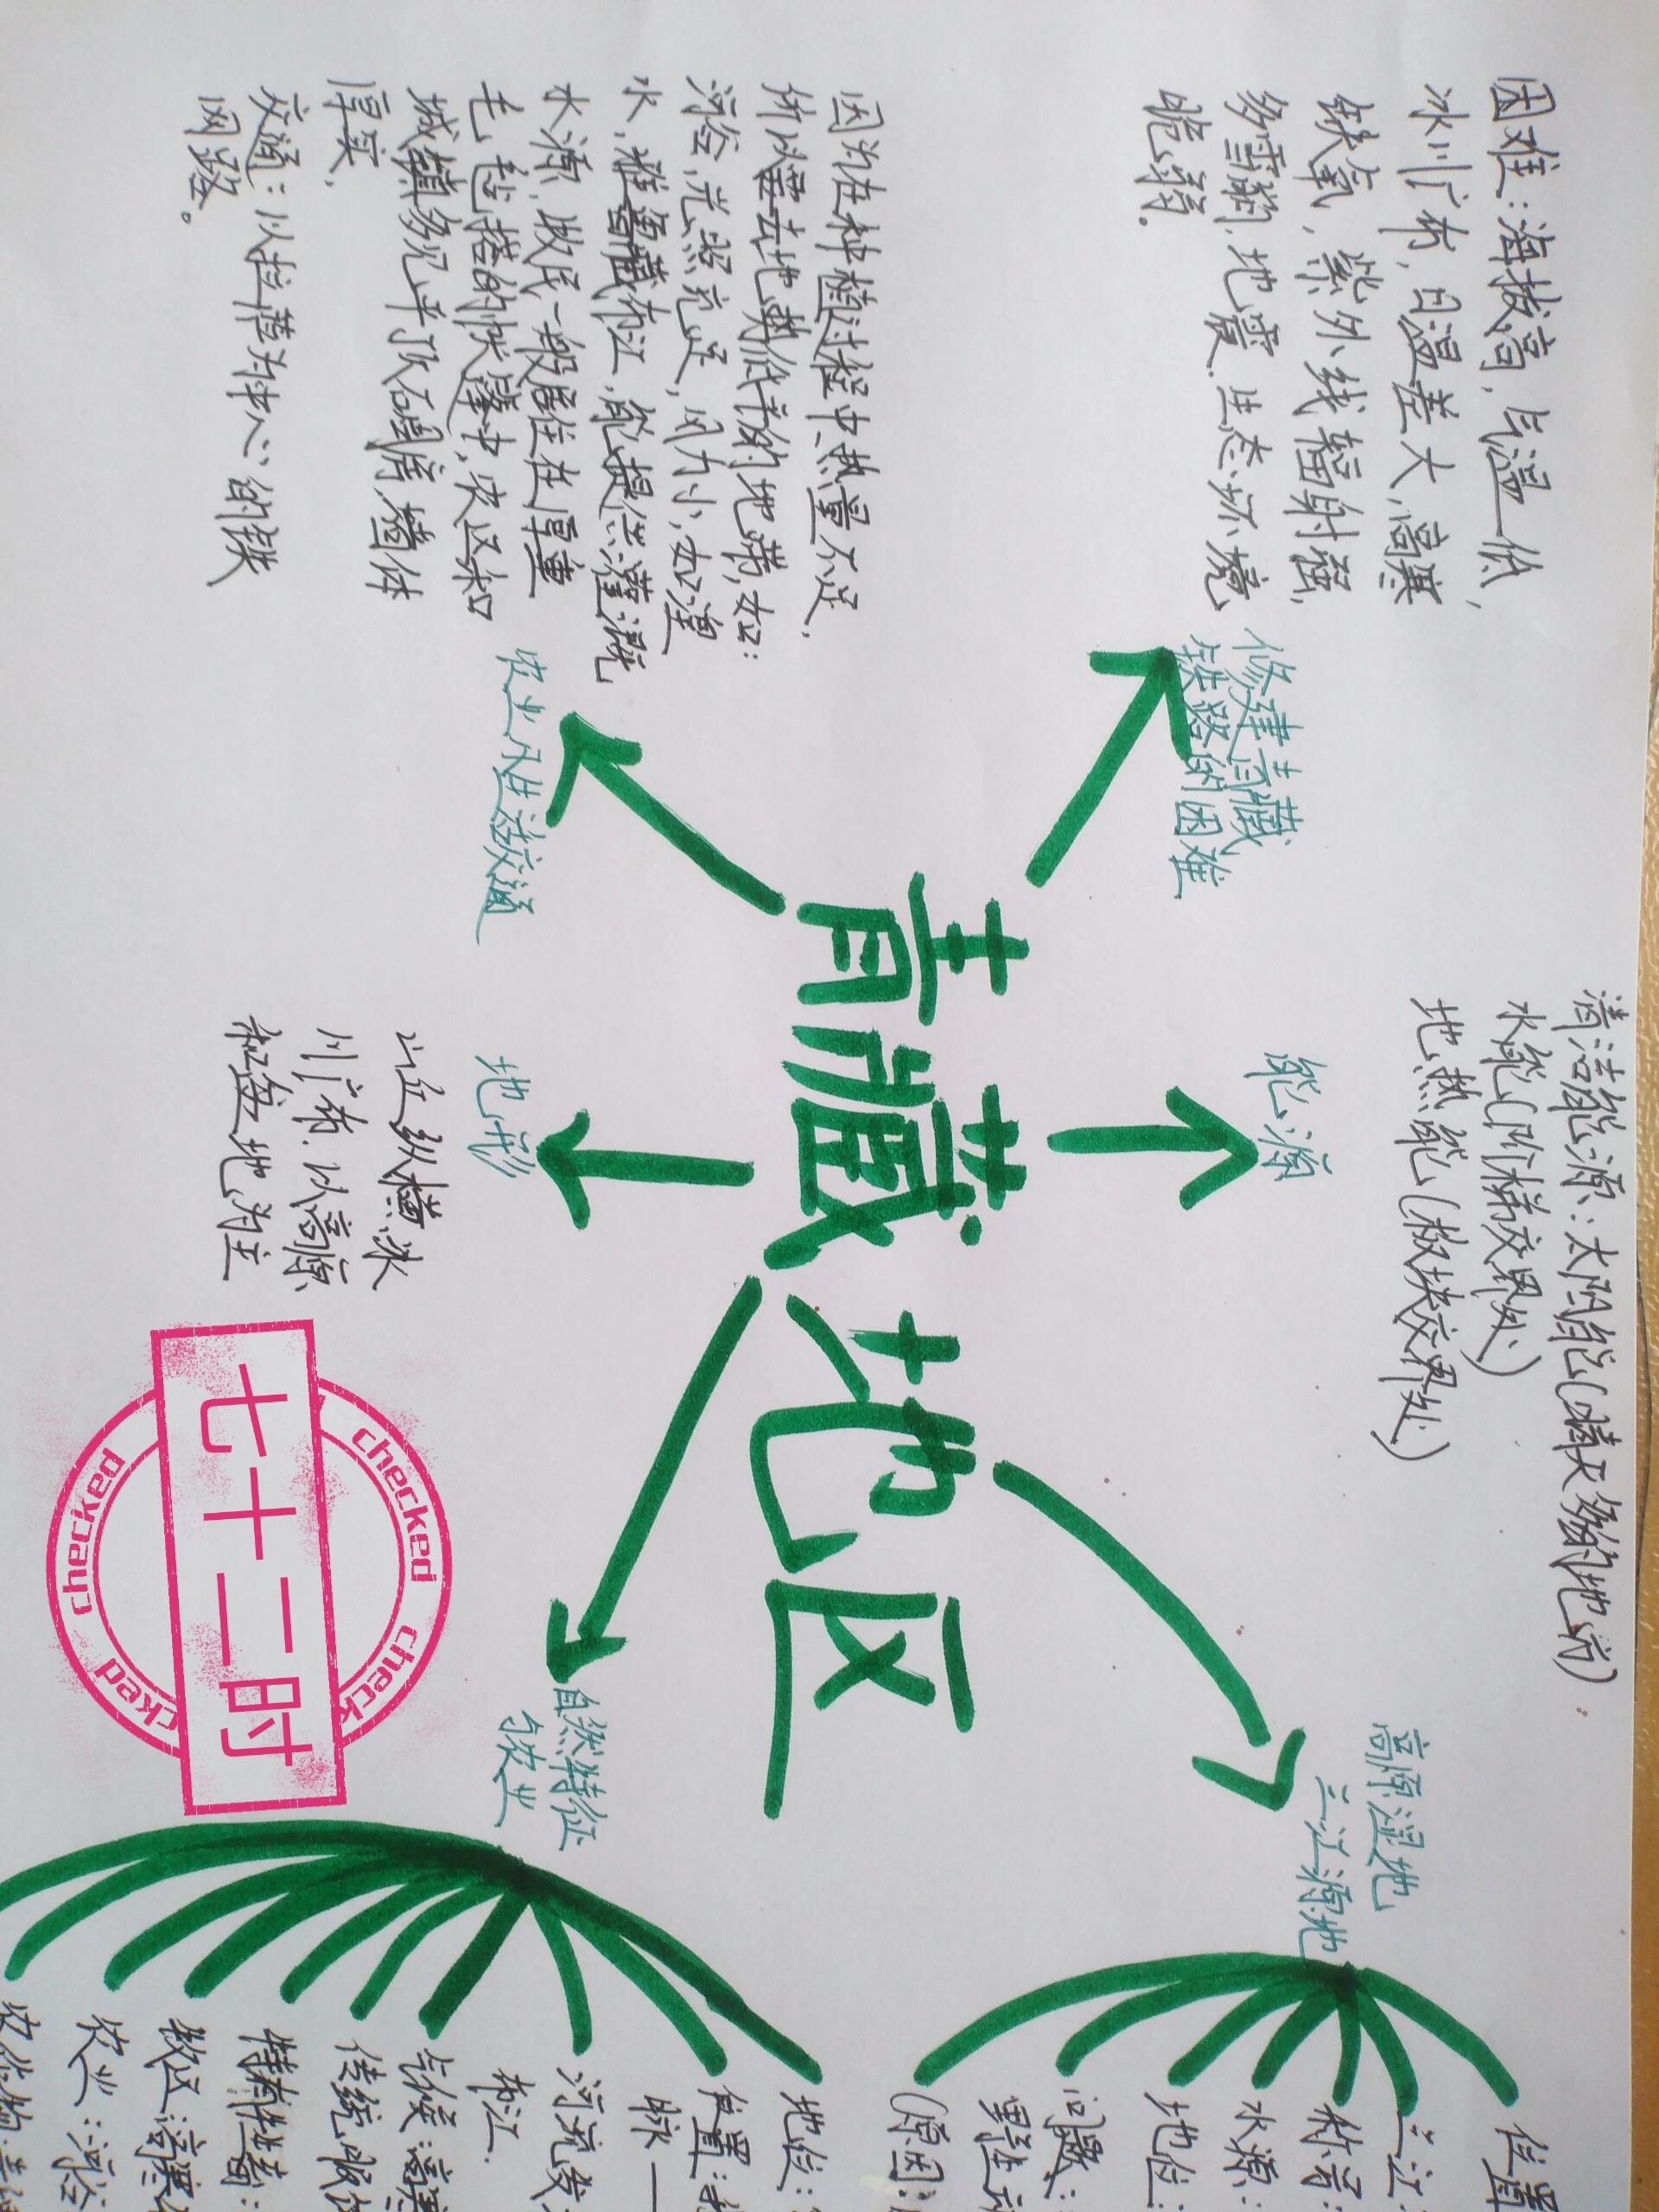 困难：海拔高，气温低，
冰川广布，日温差大，高寒
缺氧，紫外线辐射强，
多雪崩，地震，生态环境
脆弱。
修建青藏
铁路的困难
清洁能源：太阳能（晴天多的地方）
水能（阶梯交界处）
地热能（板块交界处）
能源
高原湿地
三江源地
位置
三江
称号：
水源：
地位：
问题：
（原因：
青藏地区
因为在种植过程中热量不足，
所以要去地势低平的地带，如：
河谷，光照充足，风力小，如湟
水，雅鲁藏布江，能提供灌溉
水源，牧民一般居住在厚重
毛毡搭的帐篷中，农区和
城镇多见平顶石碉房，墙体
厚实，
交通：以拉萨为中心的铁
网路。
农业
交通
地形
山多纵横冰
川广布，以高原
和盆地为主
自然特征
与农业
地位：
位置：
脉一
河流发
布江．
气候：高寒
传统服
特有牲畜：
牧区：高寒
农业：河谷
农作物：
七十二时
checked
checked
check
cked